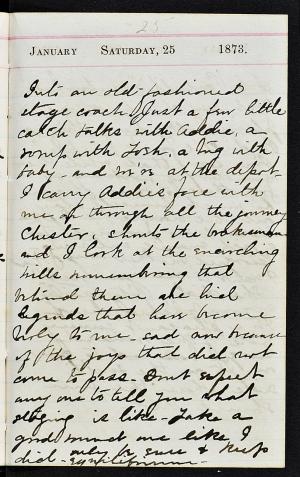 25
January Saturday, 25 1873.
Into an old-fashioned
stage coach. Just a few little
catch talks with Addie, a
romp with Josh, a hug with
baby - and we're at the depot.
I carry Addie's face with
me through all the journey
Chester, shouts the brakeman
and I look at the encircling
hills remembering that
behind them are hid
legends that have become
holy to me - sad now because
of the joys that did not
come to pass - Don't expect
any one to tell you what
staging is like - Take a
good one like I
did - only be sure & keep
equilibrium -